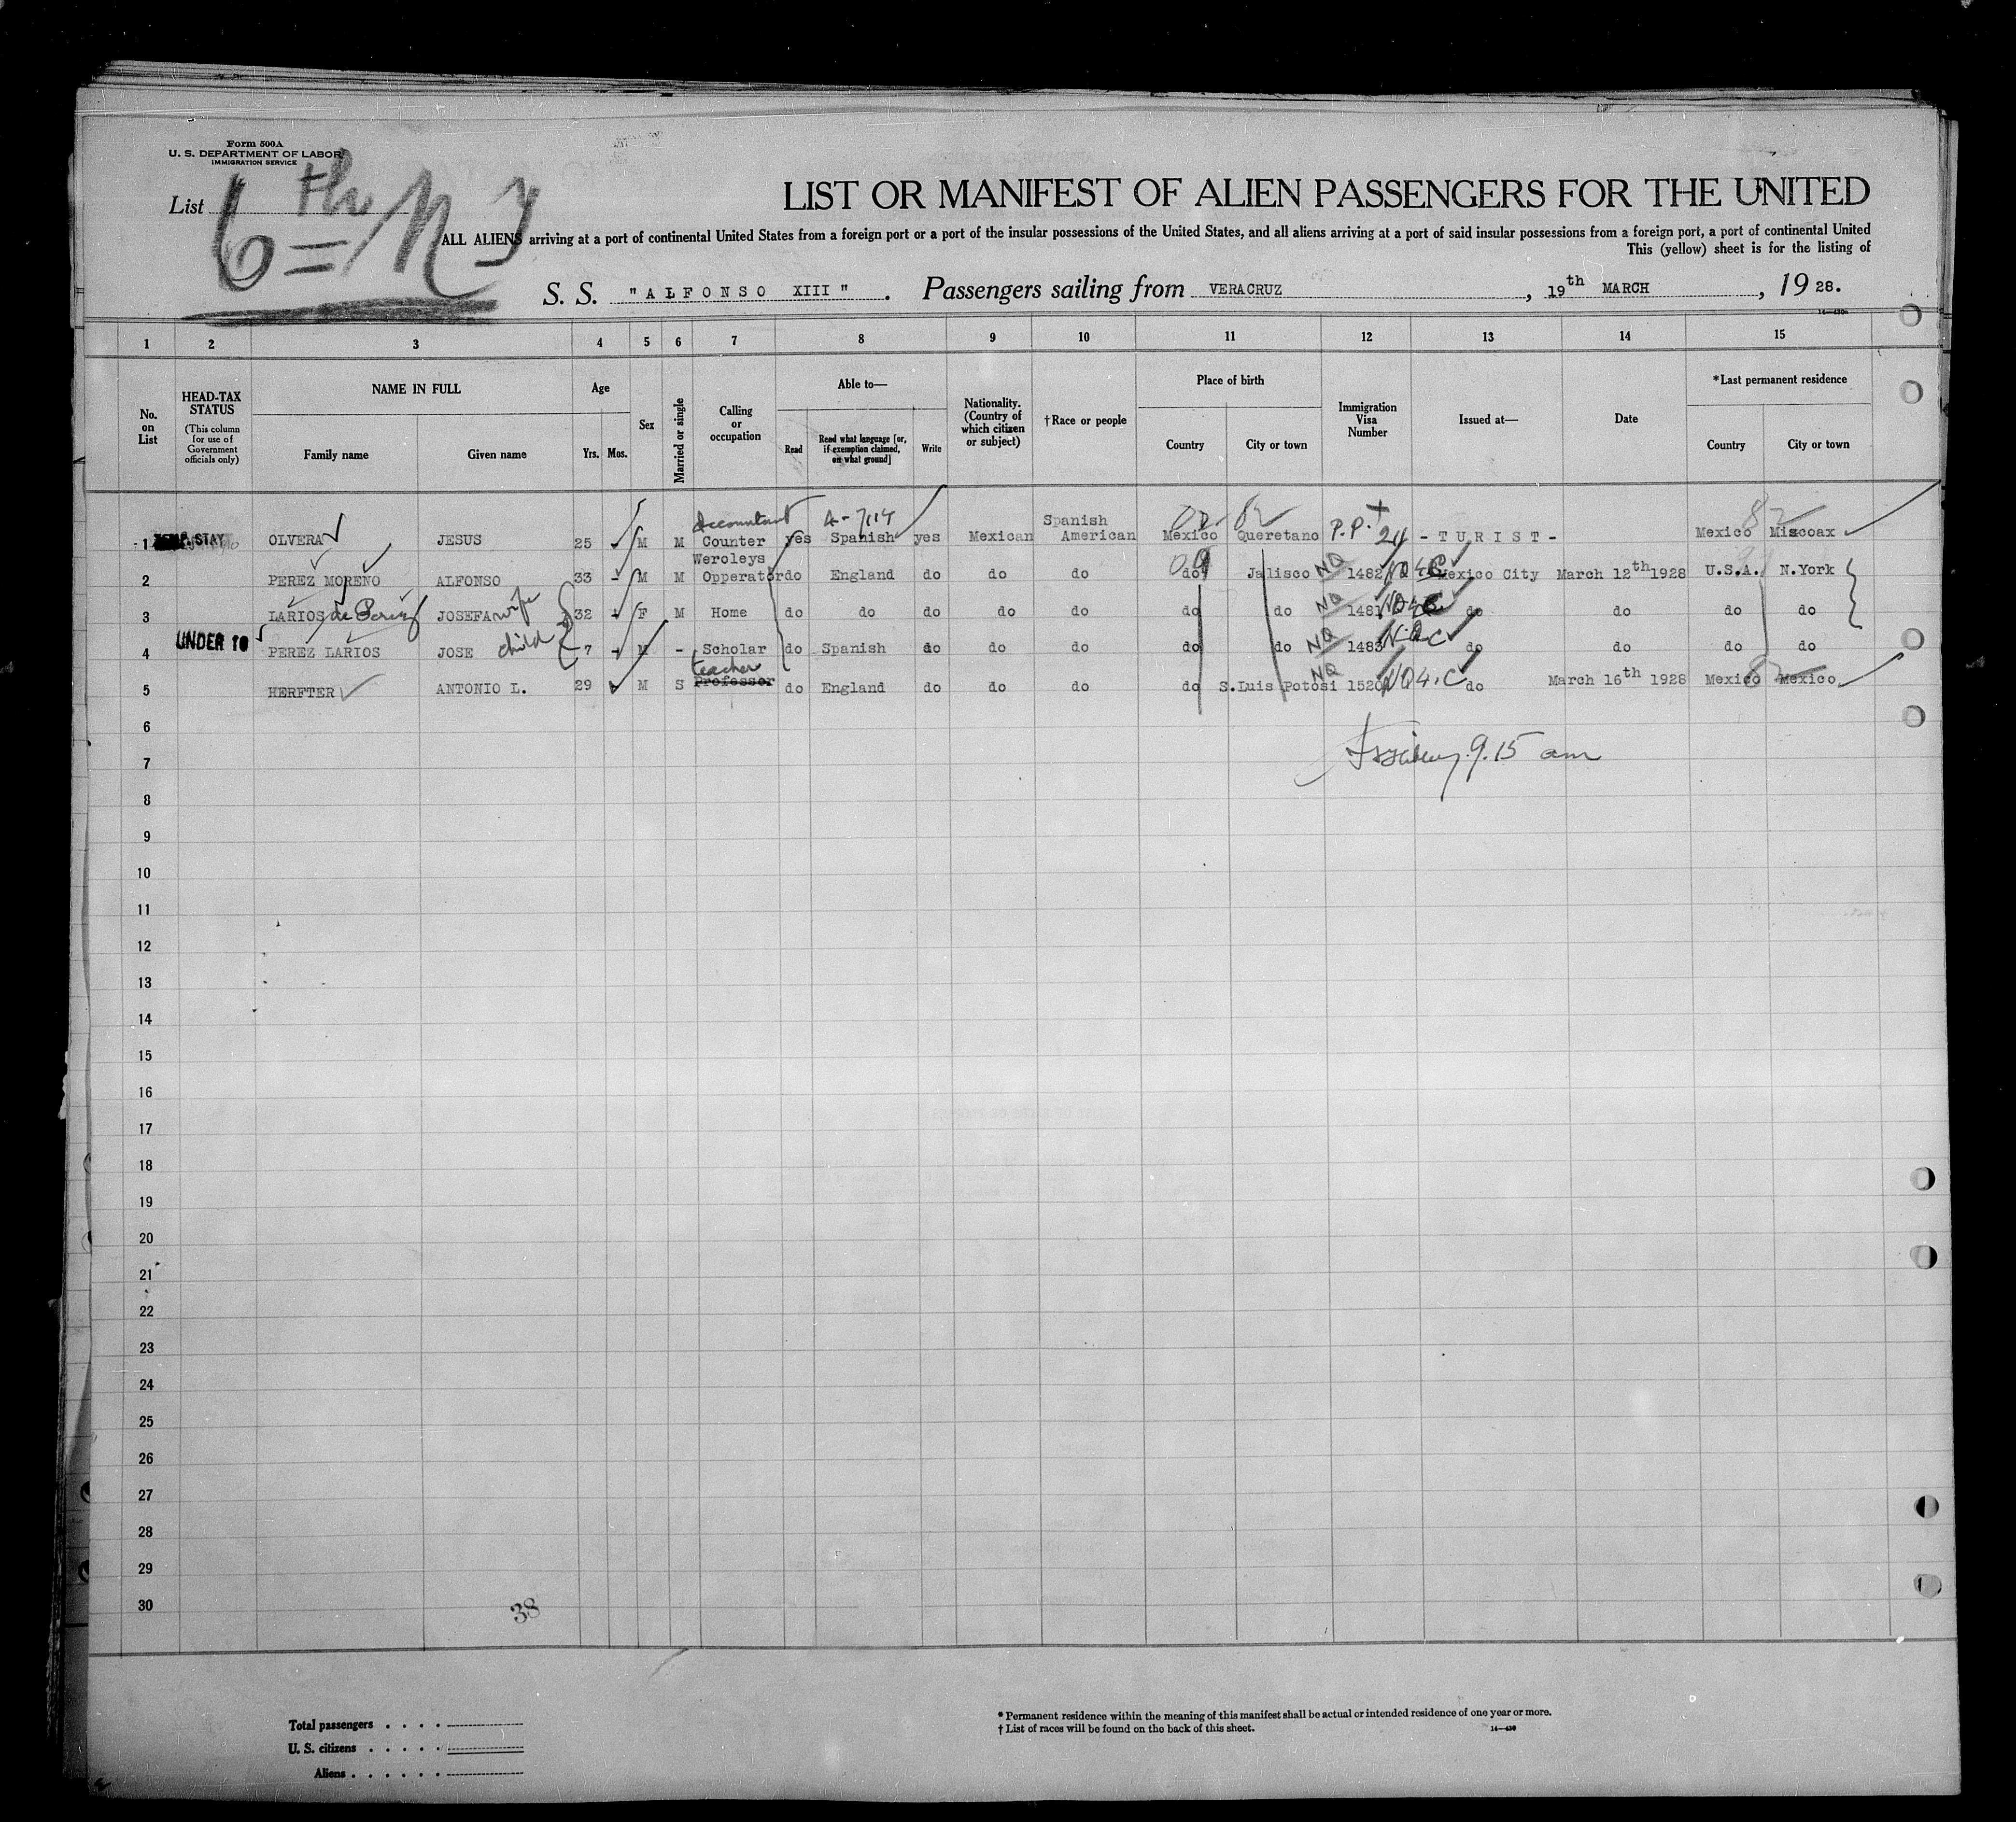 Form 500A
U. S. DEPARTMENT OF LABOR
IMMIGRATION SERVICE
List 6th = NY
LIST OR MANIFEST OF ALIEN PASSENGERS FOR THE UNITED
ALL ALIENS arriving at a port of continental United States from a foreign port or a port of the insular possessions of the United States, and all aliens arriving at a port of said insular possessions from a foreign port, a port of continental United
This (yellow) sheet is for the listing of
S. S. "ALFONSO XIII". Passengers sailing from VERACRUZ, 19th MARCH, 1928.
1 2 3 4 5 6 7 8 9 10 11 12 13 14 15
No. on List
HEAD-TAX STATUS (This column for use of Government officials only)
NAME IN FULL
Family name Given name
Age
Yrs. Mos.
Sex
Married or single
Calling or occupation
Able to—
Read Read what language [or, if exemption claimed, on what ground] Write
Nationality. (Country of which citizen or subject)
†Race or people
Place of birth
Country City or town
Immigration Visa Number
Issued at—
Date
*Last permanent residence
Country City or town
Accountant Spanish
1 TEMP. STAY OLVERA JESUS 25 M M Counter yes Spanish yes Mexican American Mexico Queretano P.P. 24 - TURIST - Mexico Miscoax
Weroleys
2 PEREZ MORENO ALFONSO 33 - M M Opperator do England do do do do Jalisco NQ 1482 NQ 4.C Mexico City March 12th 1928 U.S.A. N.York
3 LARIOS de Perez JOSEFA wife 32 F M Home do do do do do do do NQ 1481 NQ 4.C do do do do
UNDER 16
4 PEREZ LARIOS JOSE child 7 M - Scholar do Spanish do do do do do NQ 1483 do do do do
teacher
5 HERFTER ANTONIO L. 29 M S Professor do England do do do do S.Luis Potosi NQ 1520 NQ 4.C do March 16th 1928 Mexico Mexico
6
9.15 am
7
8
9
10
11
12
13
14
15
16
17
18
19
20
21
22
23
24
25
26
27
28
29
30
38
Total passengers . . . .
U. S. citizens . . . . .
Aliens . . . . . .
* Permanent residence within the meaning of this manifest shall be actual or intended residence of one year or more.
† List of races will be found on the back of this sheet.
14—430